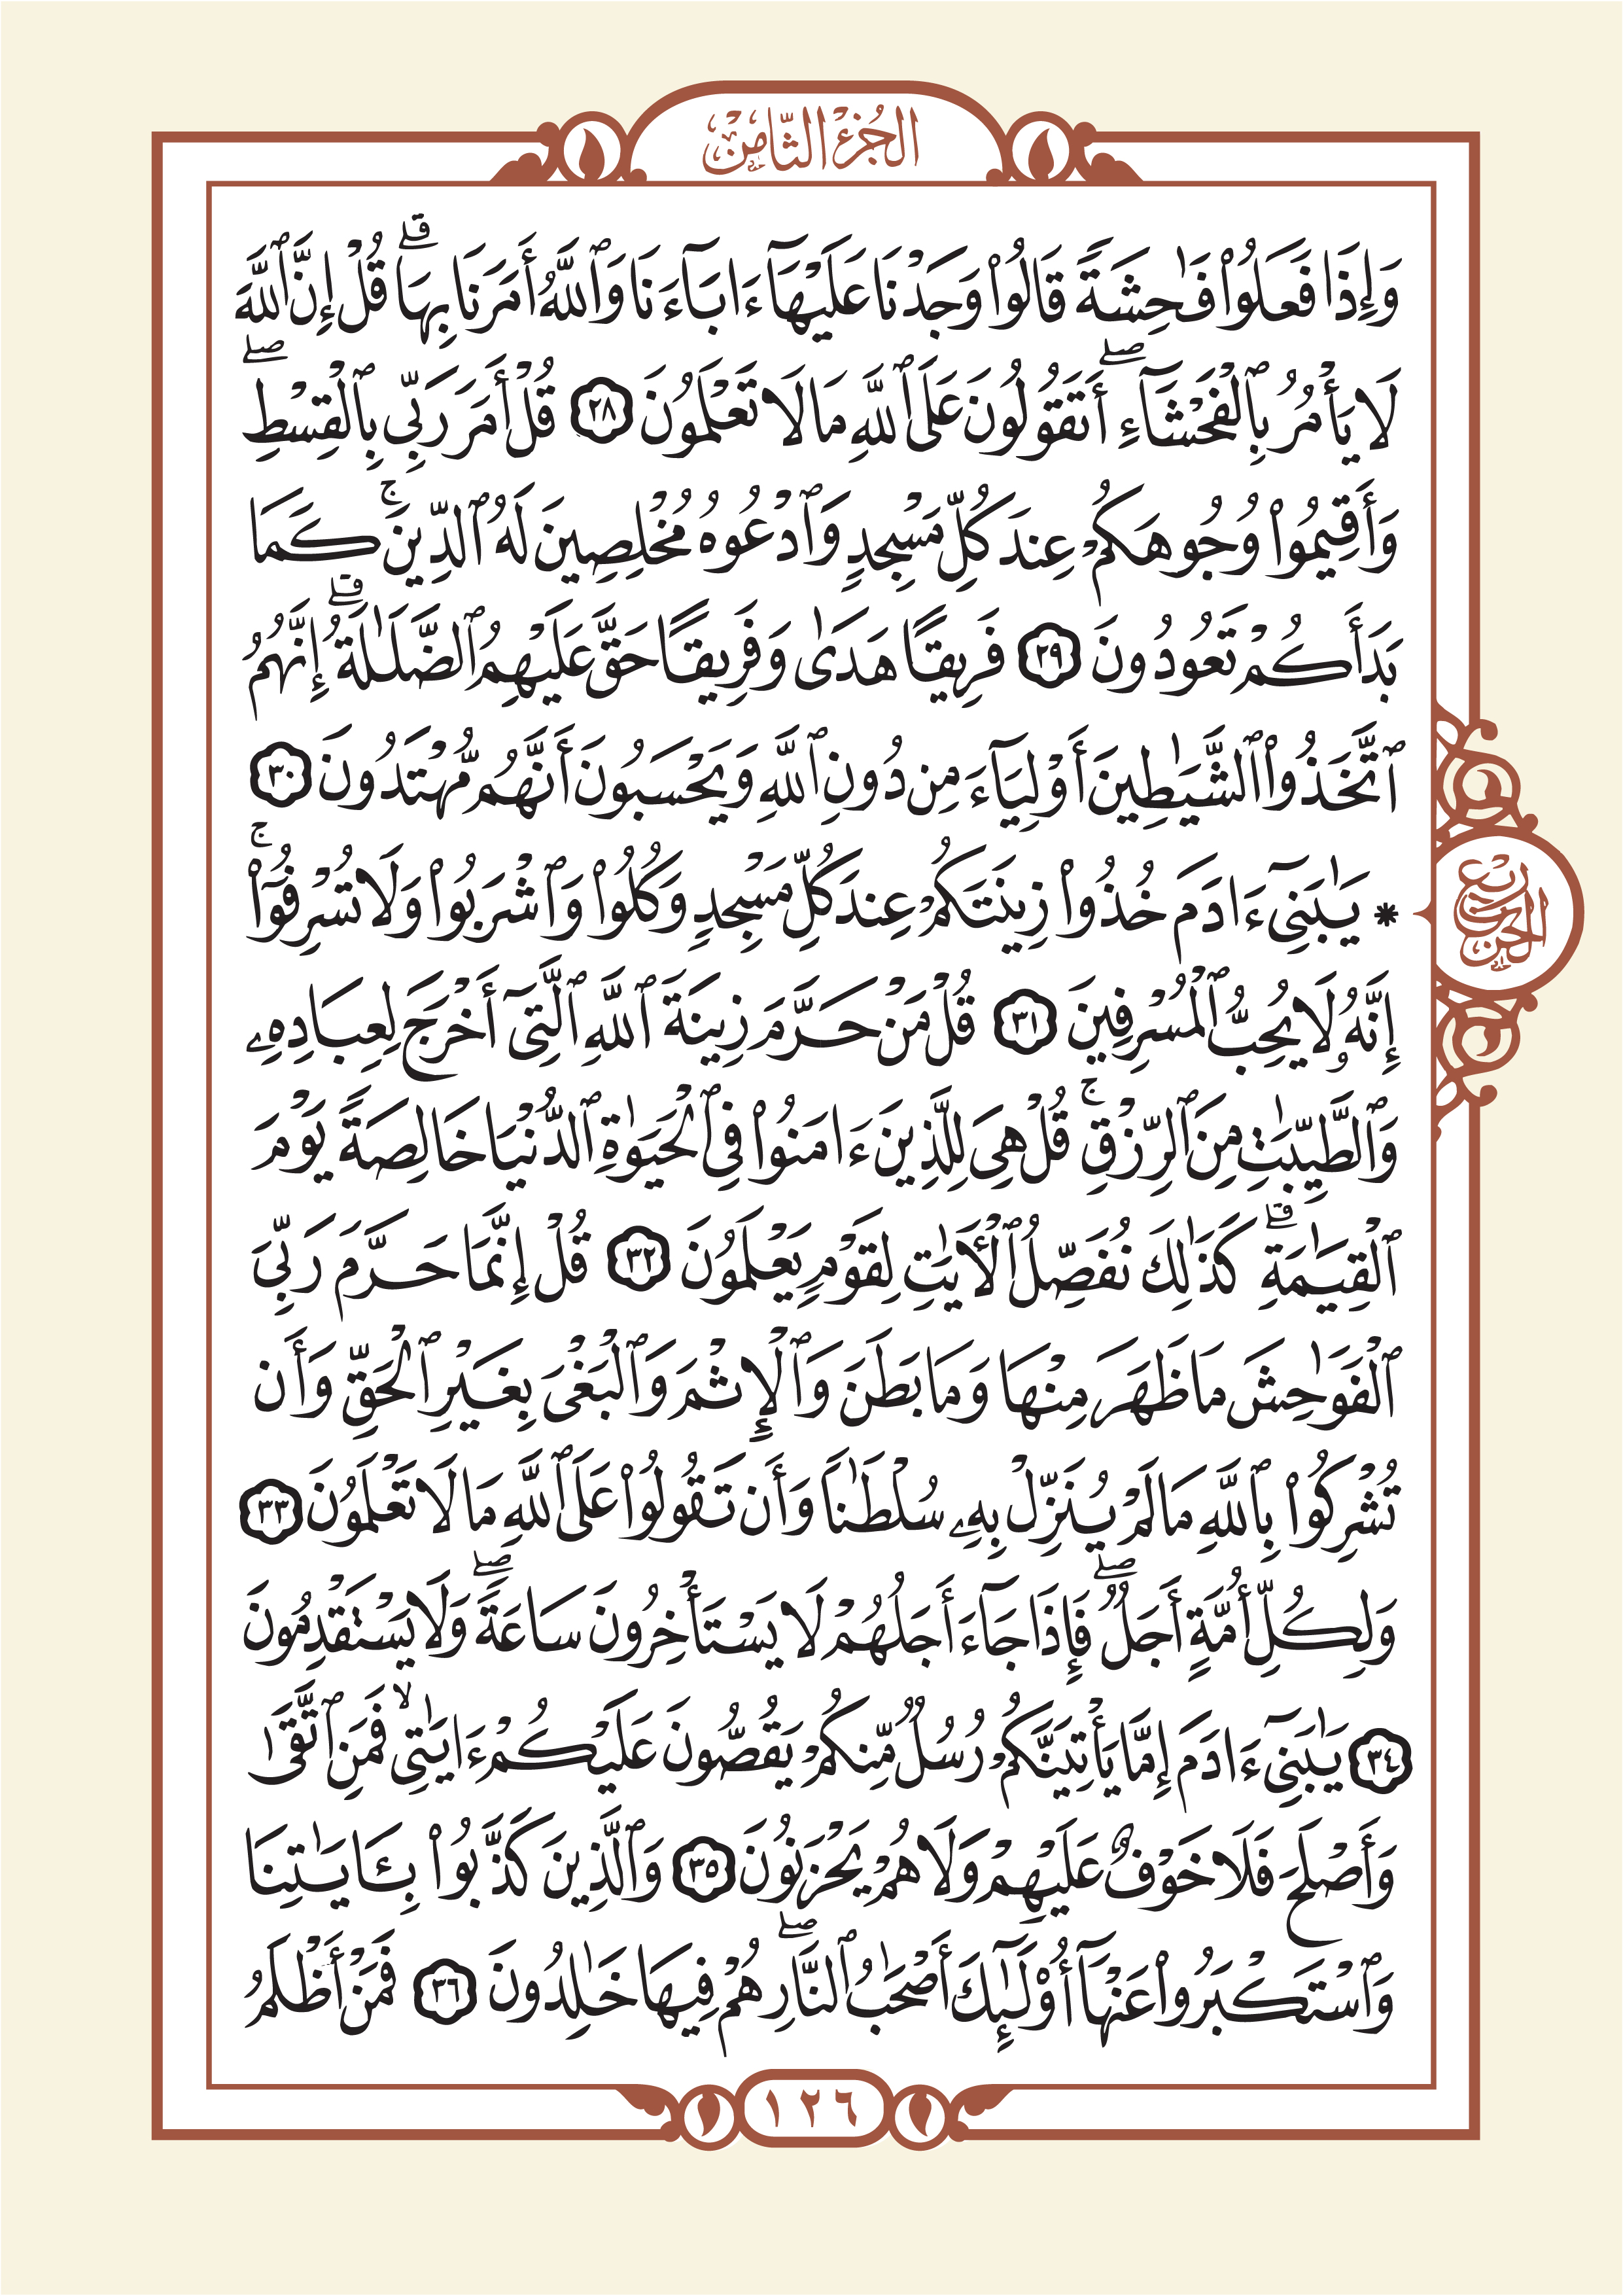 الجزء الثامن
وَإِذَا فَعَلُوا۟ فَـٰحِشَةً قَالُوا۟ وَجَدْنَا عَلَيْهَآ ءَابَآءَنَا وَٱللَّهُ أَمَرَنَا بِهَا ۗ قُلْ إِنَّ ٱللَّهَ
لَا يَأْمُرُ بِٱلْفَحْشَآءِ ۖ أَتَقُولُونَ عَلَى ٱللَّهِ مَا لَا تَعْلَمُونَ ٢٨ قُلْ أَمَرَ رَبِّى بِٱلْقِسْطِ ۖ
وَأَقِيمُوا۟ وُجُوهَكُمْ عِندَ كُلِّ مَسْجِدٍ وَٱدْعُوهُ مُخْلِصِينَ لَهُ ٱلدِّينَ ۚ كَمَا
بَدَأَكُمْ تَعُودُونَ ٢٩ فَرِيقًا هَدَىٰ وَفَرِيقًا حَقَّ عَلَيْهِمُ ٱلضَّلَـٰلَةُ ۗ إِنَّهُمُ
ٱتَّخَذُوا۟ ٱلشَّيَـٰطِينَ أَوْلِيَآءَ مِن دُونِ ٱللَّهِ وَيَحْسَبُونَ أَنَّهُم مُّهْتَدُونَ ٣٠
* يَـٰبَنِىٓ ءَادَمَ خُذُوا۟ زِينَتَكُمْ عِندَ كُلِّ مَسْجِدٍ وَكُلُوا۟ وَٱشْرَبُوا۟ وَلَا تُسْرِفُوٓا۟ ۚ
ربع الحزب
إِنَّهُۥ لَا يُحِبُّ ٱلْمُسْرِفِينَ ٣١ قُلْ مَنْ حَرَّمَ زِينَةَ ٱللَّهِ ٱلَّتِىٓ أَخْرَجَ لِعِبَادِهِۦ
وَٱلطَّيِّبَـٰتِ مِنَ ٱلرِّزْقِ ۚ قُلْ هِىَ لِلَّذِينَ ءَامَنُوا۟ فِى ٱلْحَيَوٰةِ ٱلدُّنْيَا خَالِصَةً يَوْمَ
ٱلْقِيَـٰمَةِ ۗ كَذَٰلِكَ نُفَصِّلُ ٱلْـَٔايَـٰتِ لِقَوْمٍ يَعْلَمُونَ ٣٢ قُلْ إِنَّمَا حَرَّمَ رَبِّىَ
ٱلْفَوَٰحِشَ مَا ظَهَرَ مِنْهَا وَمَا بَطَنَ وَٱلْإِثْمَ وَٱلْبَغْىَ بِغَيْرِ ٱلْحَقِّ وَأَن
تُشْرِكُوا۟ بِٱللَّهِ مَا لَمْ يُنَزِّلْ بِهِۦ سُلْطَـٰنًا وَأَن تَقُولُوا۟ عَلَى ٱللَّهِ مَا لَا تَعْلَمُونَ ٣٣
وَلِكُلِّ أُمَّةٍ أَجَلٌ ۖ فَإِذَا جَآءَ أَجَلُهُمْ لَا يَسْتَأْخِرُونَ سَاعَةً ۖ وَلَا يَسْتَقْدِمُونَ
٣٤ يَـٰبَنِىٓ ءَادَمَ إِمَّا يَأْتِيَنَّكُمْ رُسُلٌ مِّنكُمْ يَقُصُّونَ عَلَيْكُمْ ءَايَـٰتِى ۙ فَمَنِ ٱتَّقَىٰ
وَأَصْلَحَ فَلَا خَوْفٌ عَلَيْهِمْ وَلَا هُمْ يَحْزَنُونَ ٣٥ وَٱلَّذِينَ كَذَّبُوا۟ بِـَٔايَـٰتِنَا
وَٱسْتَكْبَرُوا۟ عَنْهَآ أُو۟لَـٰٓئِكَ أَصْحَـٰبُ ٱلنَّارِ ۖ هُمْ فِيهَا خَـٰلِدُونَ ٣٦ فَمَنْ أَظْلَمُ
١٢٦